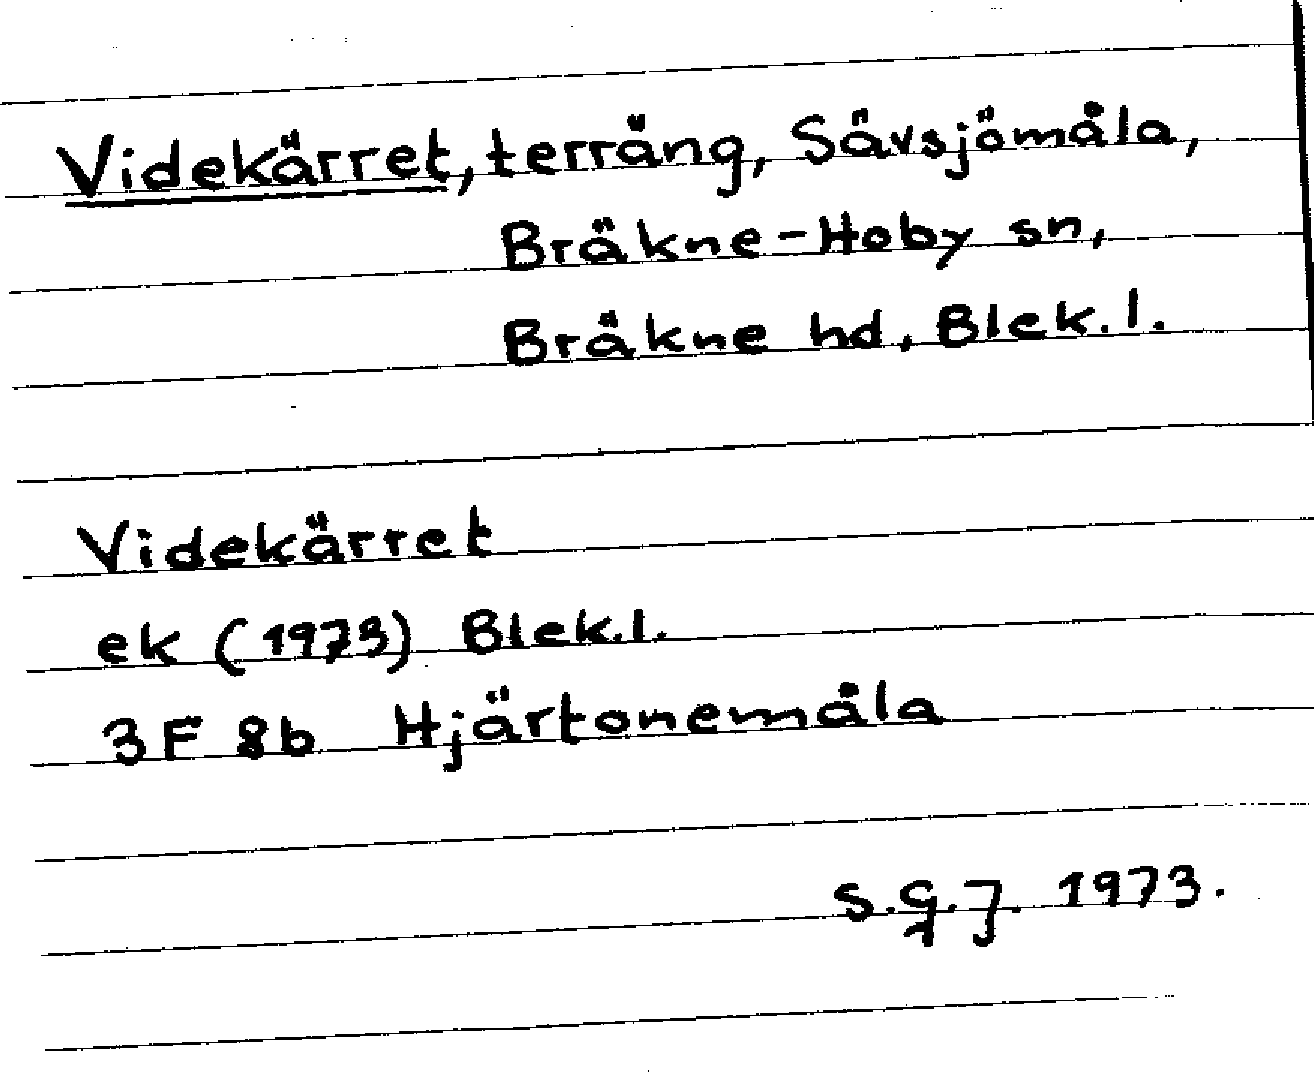 Videkärret, terräng, Sävsjömåla,
Bräkne-Hoby sn,
Bräkne hd, Blek. l.
Videkärret
ek (1973) Blek.l.
3F 8b Hjärtonemåla
S.G.J. 1973.